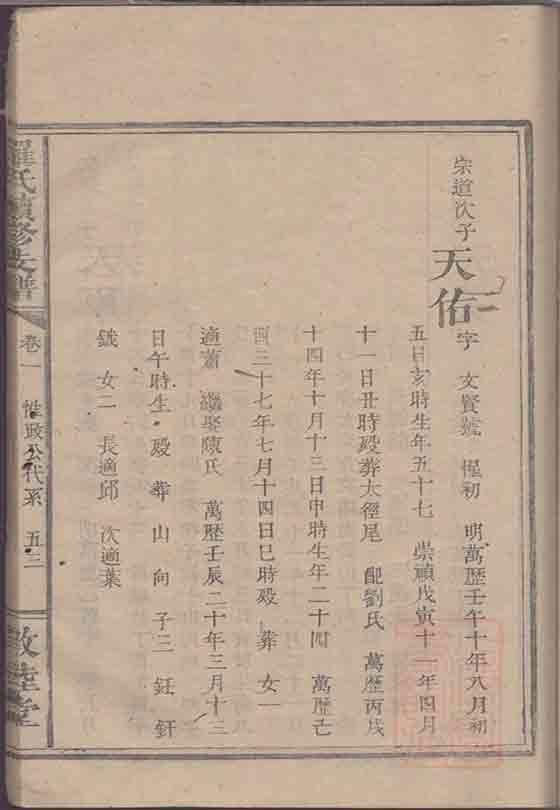 宗道次子
天佑
字 文賢號 惺初 明萬歷壬午十年八月初
五日亥時生年五十七 崇禎戊寅十一年四月
十一日丑時殁葬大徑尾 配劉氏 萬歷丙戌
十四年十月十三日申時生年二十四 萬歷己
酉三十七年七月十四日巳時殁 葬 女一
適蕭 繼娶陳氏 萬歷壬辰二十年三月十三
日午時生 殁 葬 山 向 子三 鈺 釬
鉞 女二 長適邱 次適葉
羅氏續修支譜
卷一 惟政公代系 五三
敦睦堂